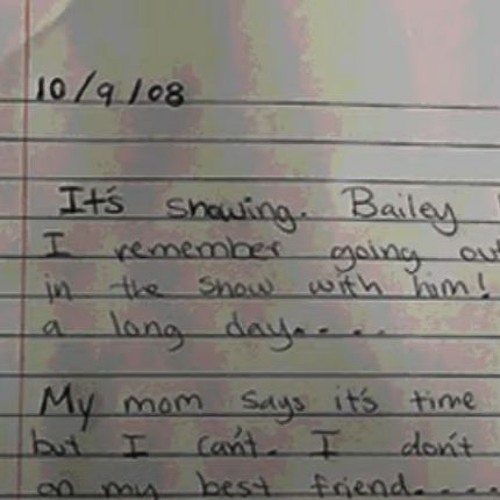 10/9/08
It's snowing. Bailey
I remember going out
in the snow with him!
a long day....
My mom says it's time
but I can't. I don't
on my best friend....